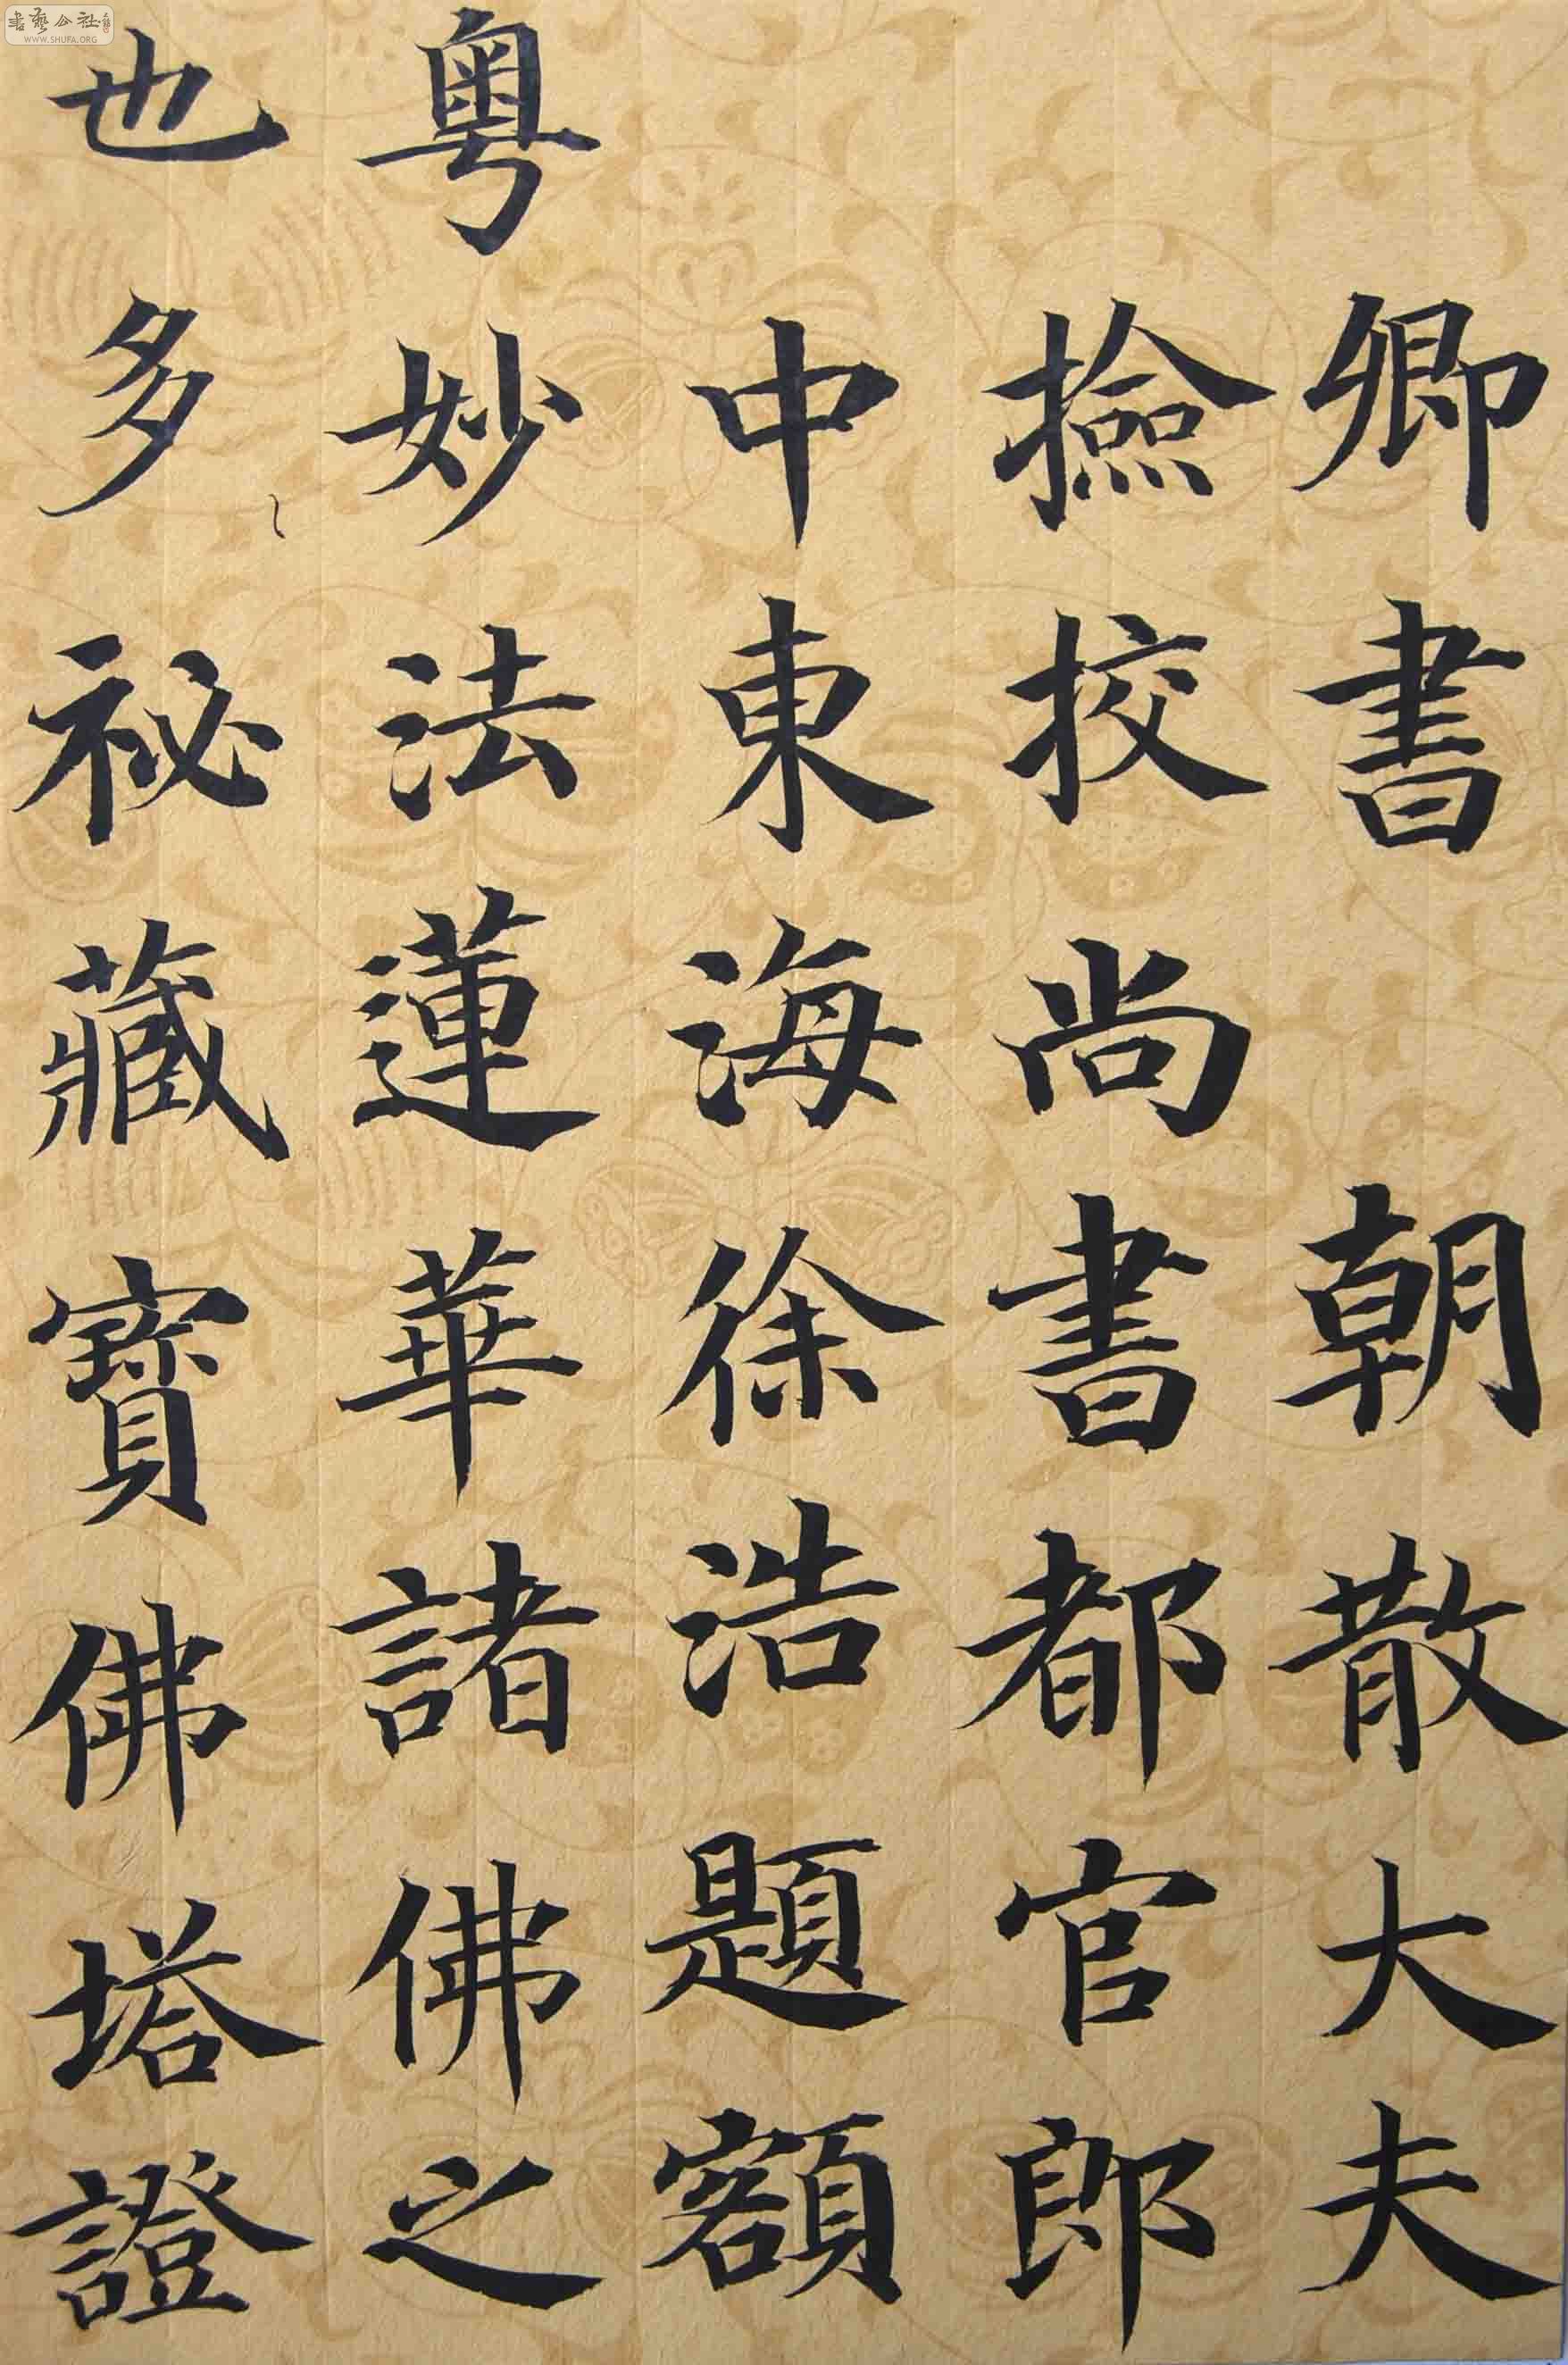 卿書　朝散大夫
撿挍尚書都官郎
中東海徐浩題額
粤妙法蓮華諸佛之
也多祕藏寶佛塔證
書藝公社
WWW.SHUFA.ORG